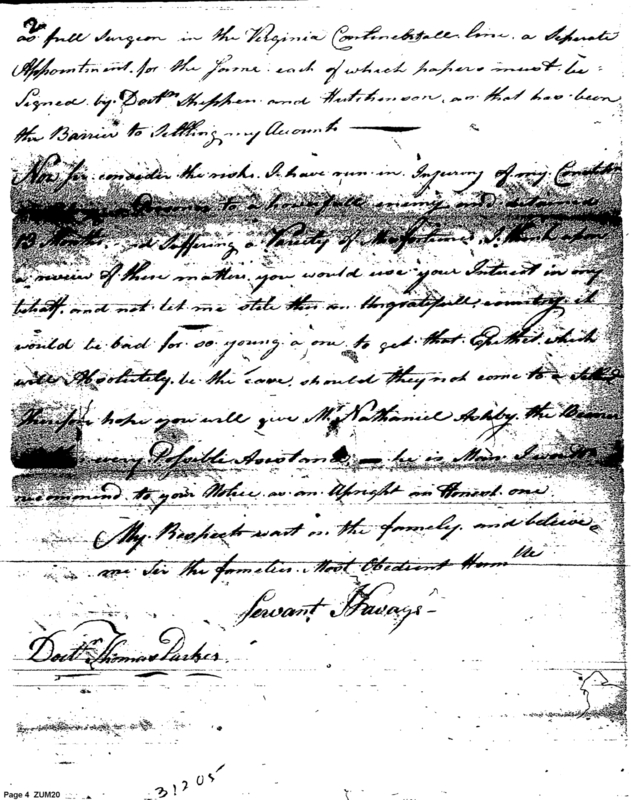 2
as full Surgeon in the Virginia Continentall line. a Seperate
Appointment for the Same each of which papers must be
Signed by Doctn Stephen and Hutchinson, as that has been
the Barrier to Settling my Acounts
Now Sir consider the risks I have run in Injuring of my
to a powerfull enemy and detained
13 Months. and Suffering a Variety of Misfortunes I think upon
a review of these matters you would use your Interest in my
behalf. and not let me stile this an Ungratefull country. it
would be bad for so young a one to get that Epithet which
will Absolutely be the case should they not come to a
therefore hope you will give Mr Nathaniel Ashby the Bearer
every Possible Asistance, he is Man I would
recommend to your Notice as an Upright an Honest one
My Respects wait on the famely and believe
me Sir the famelies Most Obedient Humble
Servant J Savage
Doctr Thomas Parker
31205
Page 4 ZUM20